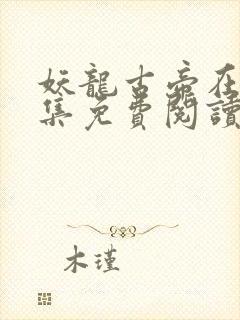 妖龍古帝在
集免費閱讀
木瑾